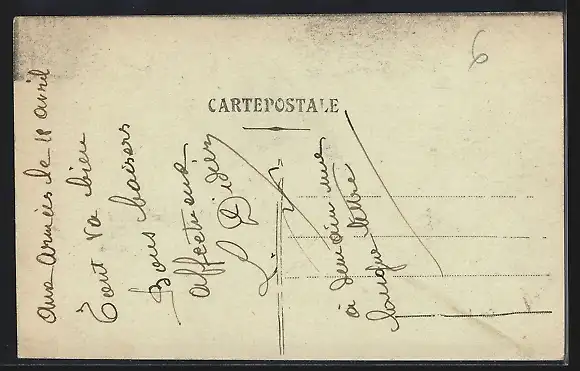 CARTE POSTALE
6
Aux Armées le 18 avril
Tout va bien
Bons baisers
affectueux
L Didier
à demain une
longue lettre